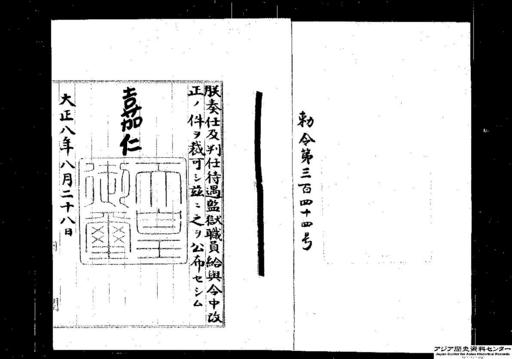 勅令第三百四十四号
朕奏任及判任待遇監獄職員給與令中改
正ノ件ヲ裁可シ茲ニ之ヲ公布セシム
嘉仁
天皇御璽
大正八年八月二十八日
アジア歴史資料センター
Japan Center for Asian Historical Records